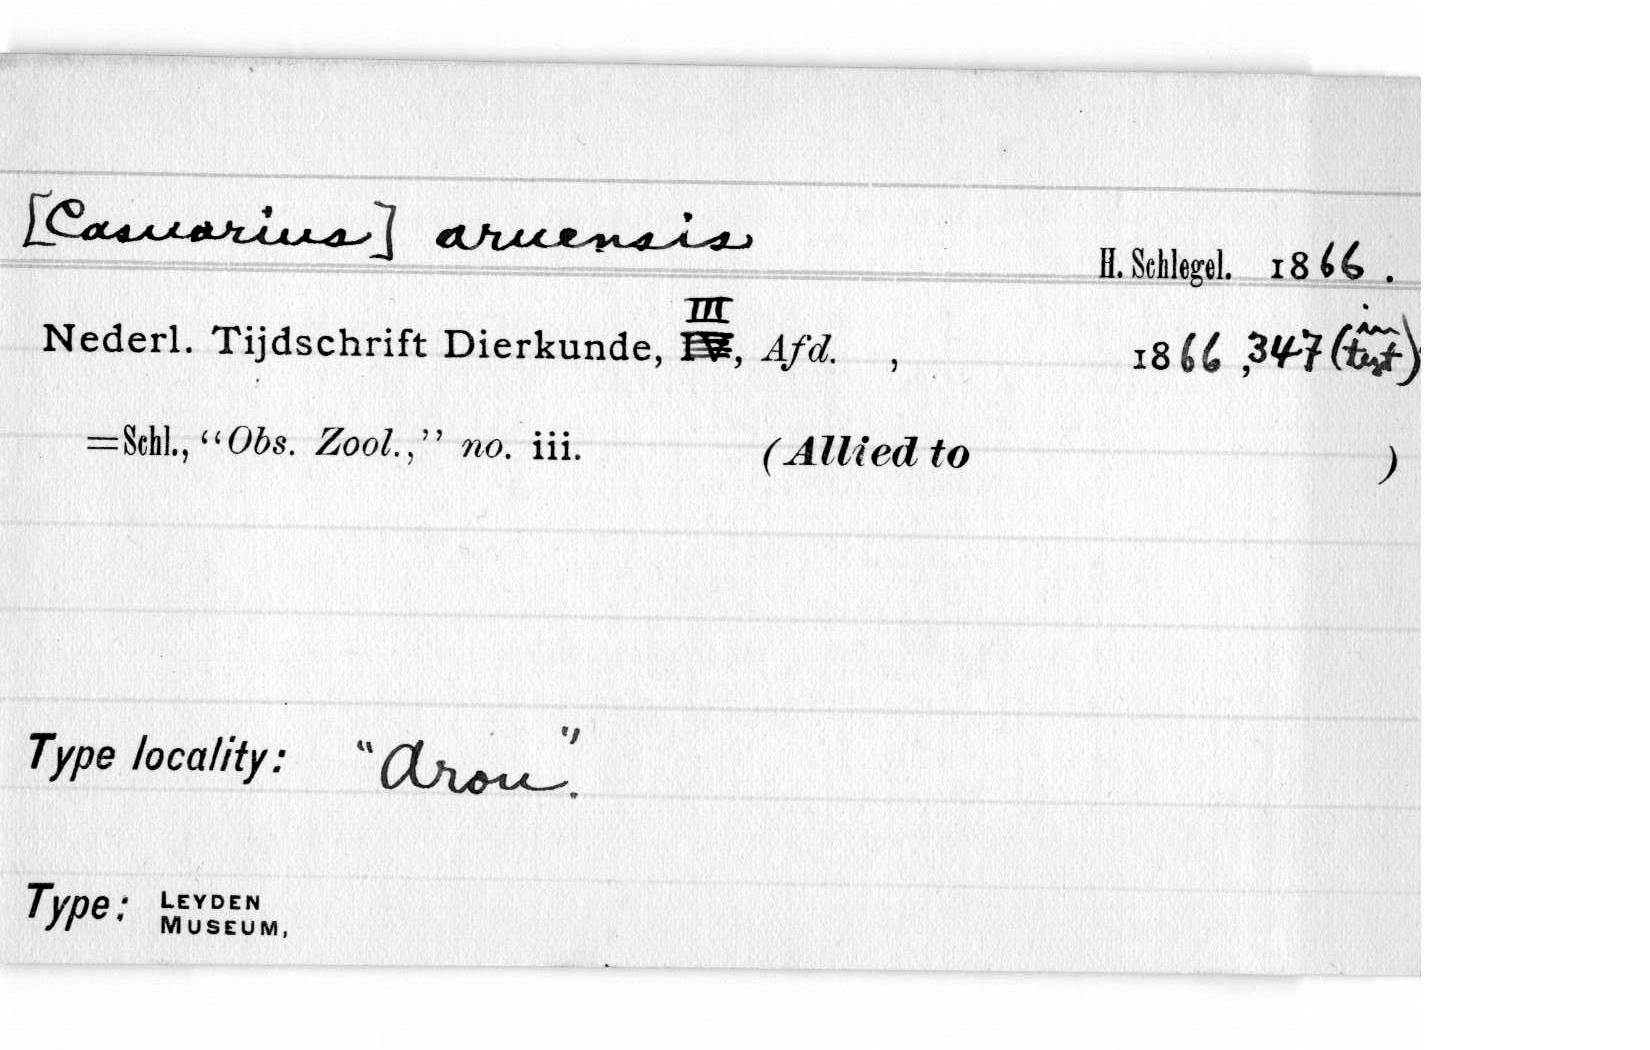 [Casuarius] aruensis
H. Schlegel. 1866.
III
Nederl. Tijdschrift Dierkunde, IV, Afd. , 1866, 347 (in text)
=Schl., “Obs. Zool.,” no. iii. (Allied to )
Type locality: “Arou”.
Type: LEYDEN
MUSEUM,